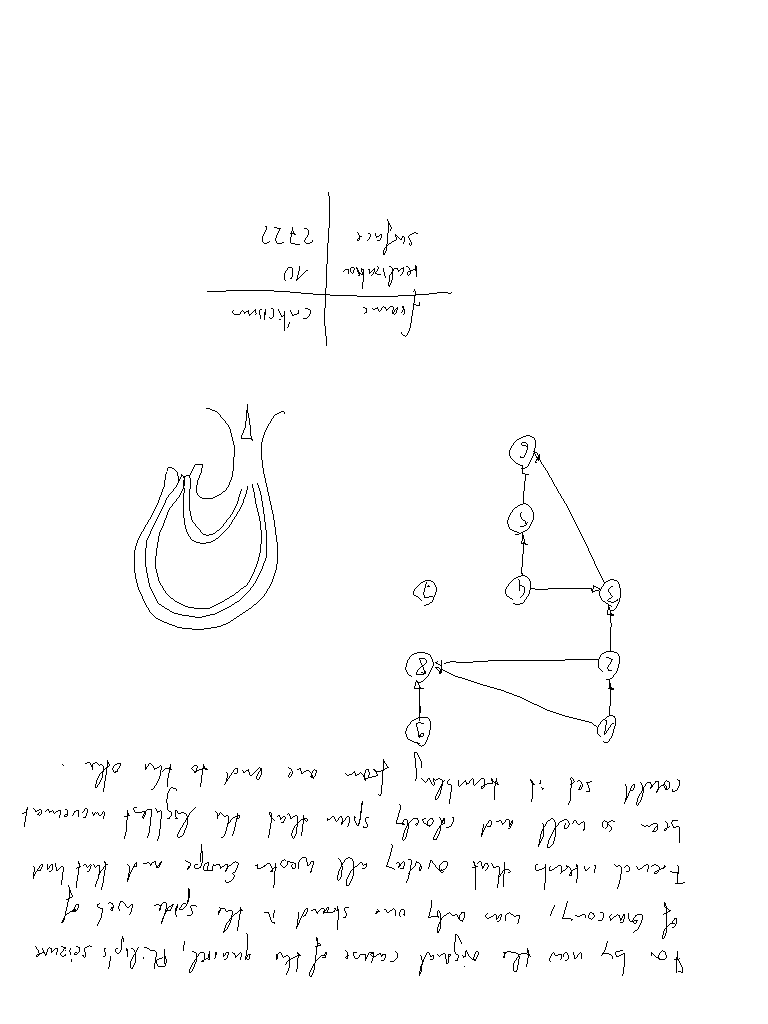 For by now the original cause of the quarrel, Philip's seizure
of Gascony, was only one strand in the spider web of
French interests that overlay all western Europe and that had
been so well and closely spun that the lightest movement
could set it trembling from one end to the other.
1 9
2 8
3 4 7
5
6
frame criticism
realization 10
surface 2722